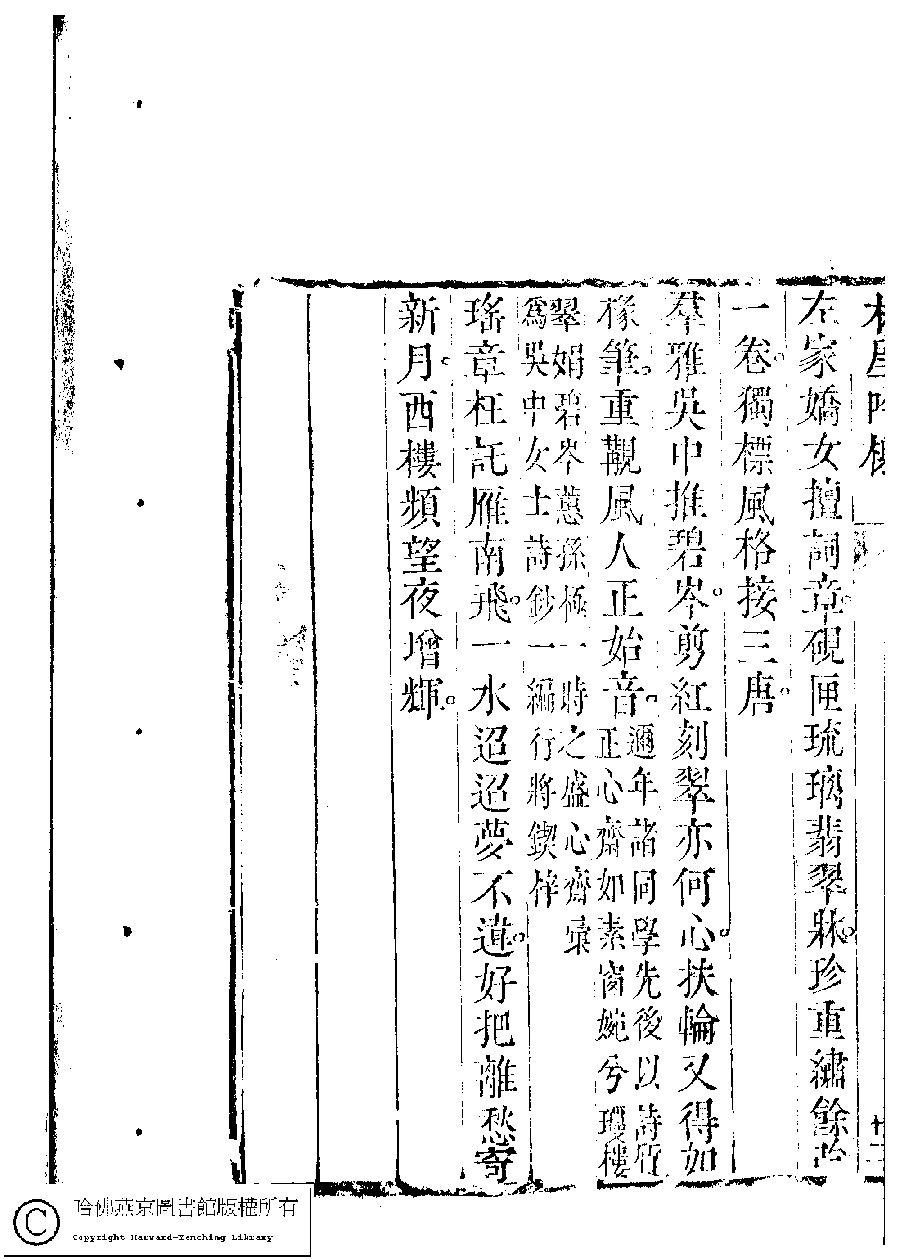 林屋吟榭
左家嬌女擅詞章。硯匣琉璃翡翠牀。珍重繡餘
一卷。獨標風格接三唐。
羣雅吳中推碧岑。剪紅刻翠亦何心。扶輪又得如
椽筆。重覯風人正始音。邇年諸同學先後以詩質
正心齋如素窗婉兮瓊樓
翠娟碧岑蕙孫極一時之盛心齋彙
爲吳中女士詩鈔一編行將鍥梓
瑤章枉託雁南飛。一水迢迢夢不違。好把離愁寄
新月。西樓頻望夜增輝。
哈佛燕京圖書館版權所有
Copyright Harvard-Yenching Library